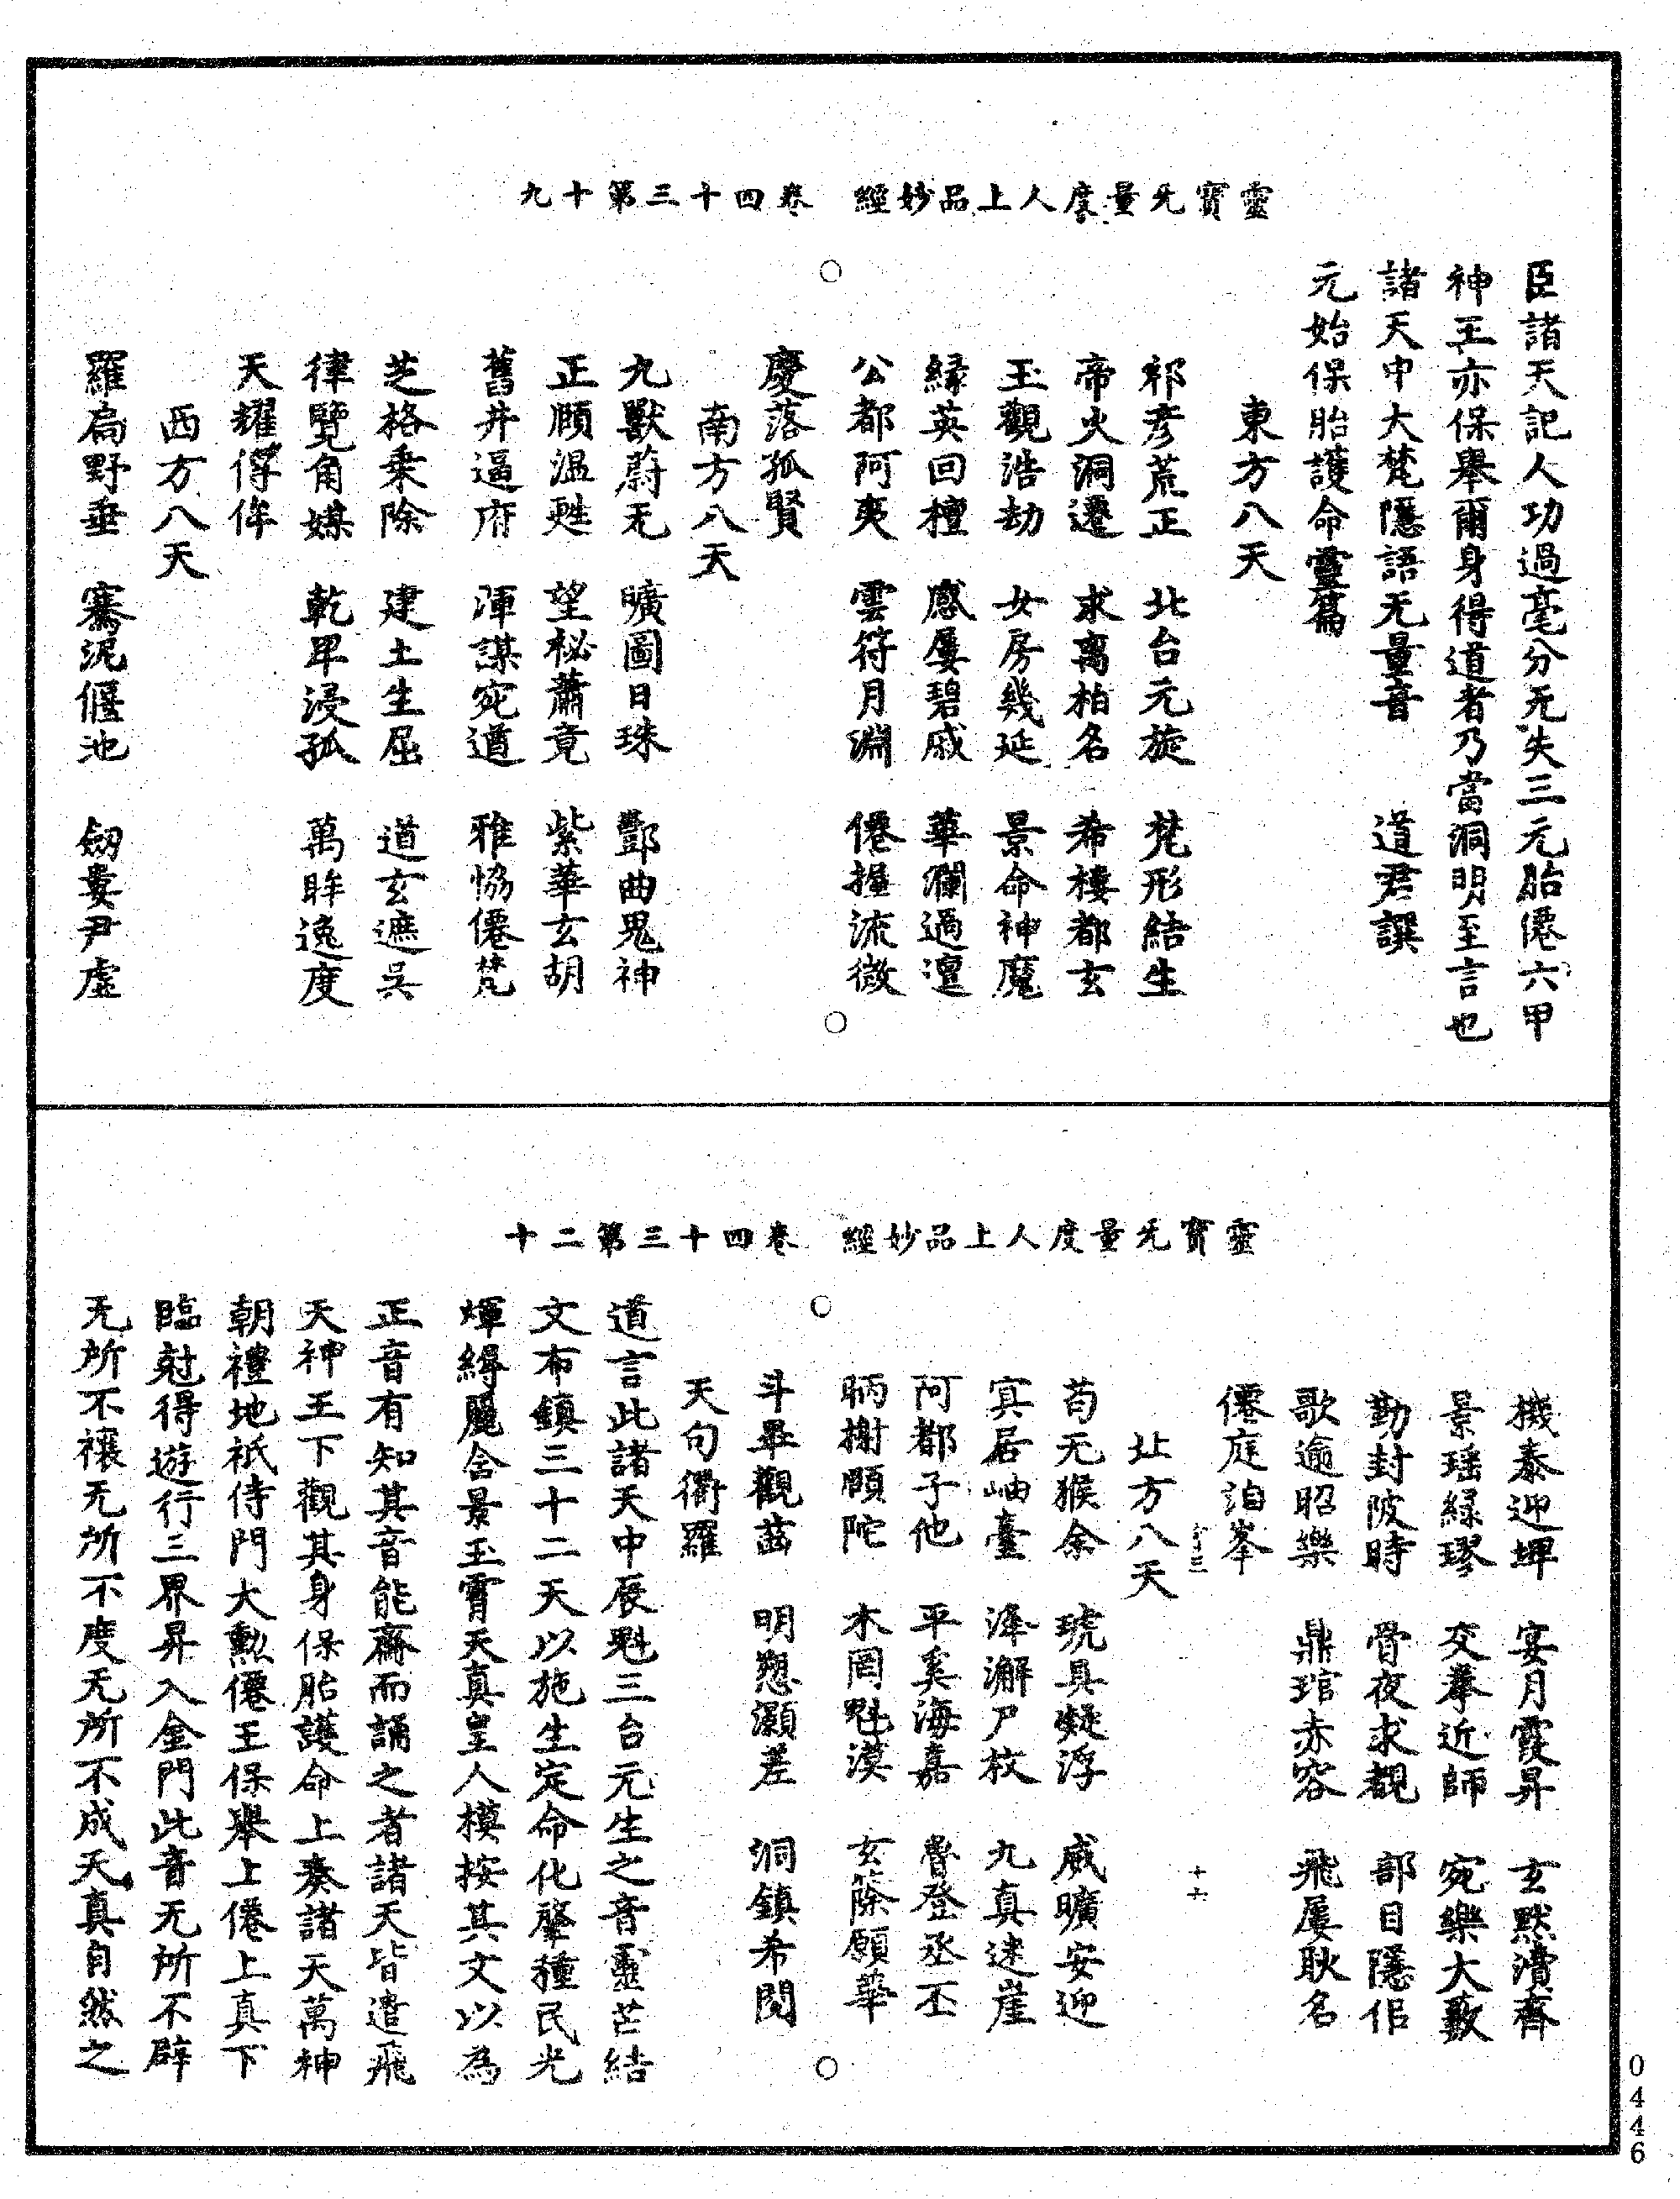 靈寶无量度人上品妙經　卷四十三第十九
臣諸天記人功過毫分无失三元胎僊六甲
神王亦保舉爾身得道者乃當洞明至言也
諸天中大梵隱語无量音　道君譔
元始保胎護命靈篇
東方八天
郛彥荒正　北台元旋　梵形結生
帝火洞遷　求离柏名　希樓都玄
玉觀浩劫　女房幾延　景命神魔
緣英回檀　感屢碧戚　華瀾過邅
公都阿奭　雲符月淵　僊握流微
慶落孤賢
南方八天
九獸蔚无　曠圖日珠　酆曲鬼神
正頤溫甦　望秘蕭竟　紫華玄胡
舊井逼府　渾謀宛道　雅恊僊梵
芝格乘除　建土生屈　道玄遮吳
律覽角媒　乾早浸孤　萬眸逸度
天耀侔
西方八天
羅扃野垂　騫泥偃池　劒婁尹虛
靈寶无量度人上品妙經　卷四十三第二十
機泰迎墀　宴月霞昇　玄默瀆齊
景瑤緑璆　交搴近師　宛樂大藪
勤封陂時　骨夜求觀　部目隱佀
歌逾昭樂　鼎琯赤容　飛屢耿名
僊庭洎峯
北方八天
十六
苟无猴余　琥具凝浮　威曠安迎
寘居岫臺　浲澥尸枚　九真逑崖
阿都子他　平奚海嘉　魯登丞丕
昞榭頤陀　木罔魁漠　玄蒢願華
斗畢觀茁　明愬灝差　洞鎮希閱
天句衢羅
道言此諸天中辰魁三台元生之音靈芒結
文布鎮三十二天以施生定命化肇種民光
煇縟麗舍景玉霄天真皇人模按其文以為
正音有知其音能齋而誦之者諸天皆遣飛
天神王下觀其身保胎護命上奏諸天萬神
朝禮地祇侍門大勳僊王保舉上僊上真下
臨尅得遊行三界昇入金門此音无所不辟
无所不禳无所不度无所不成天真自然之
0446